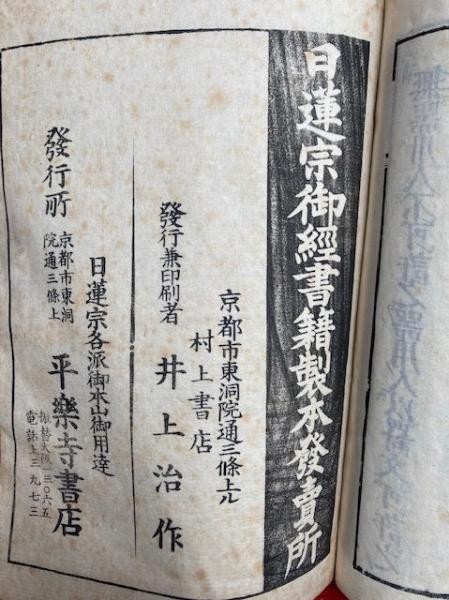 日蓮宗御經書籍製本發賣所
京都市東洞院通三條上ル
村上書店
發行兼印刷者
井上治作
日蓮宗各派御本山御用達
發行所
京都市東洞
院通三條上
平樂寺書店
振替大阪一三〇六五
電話上三九七三